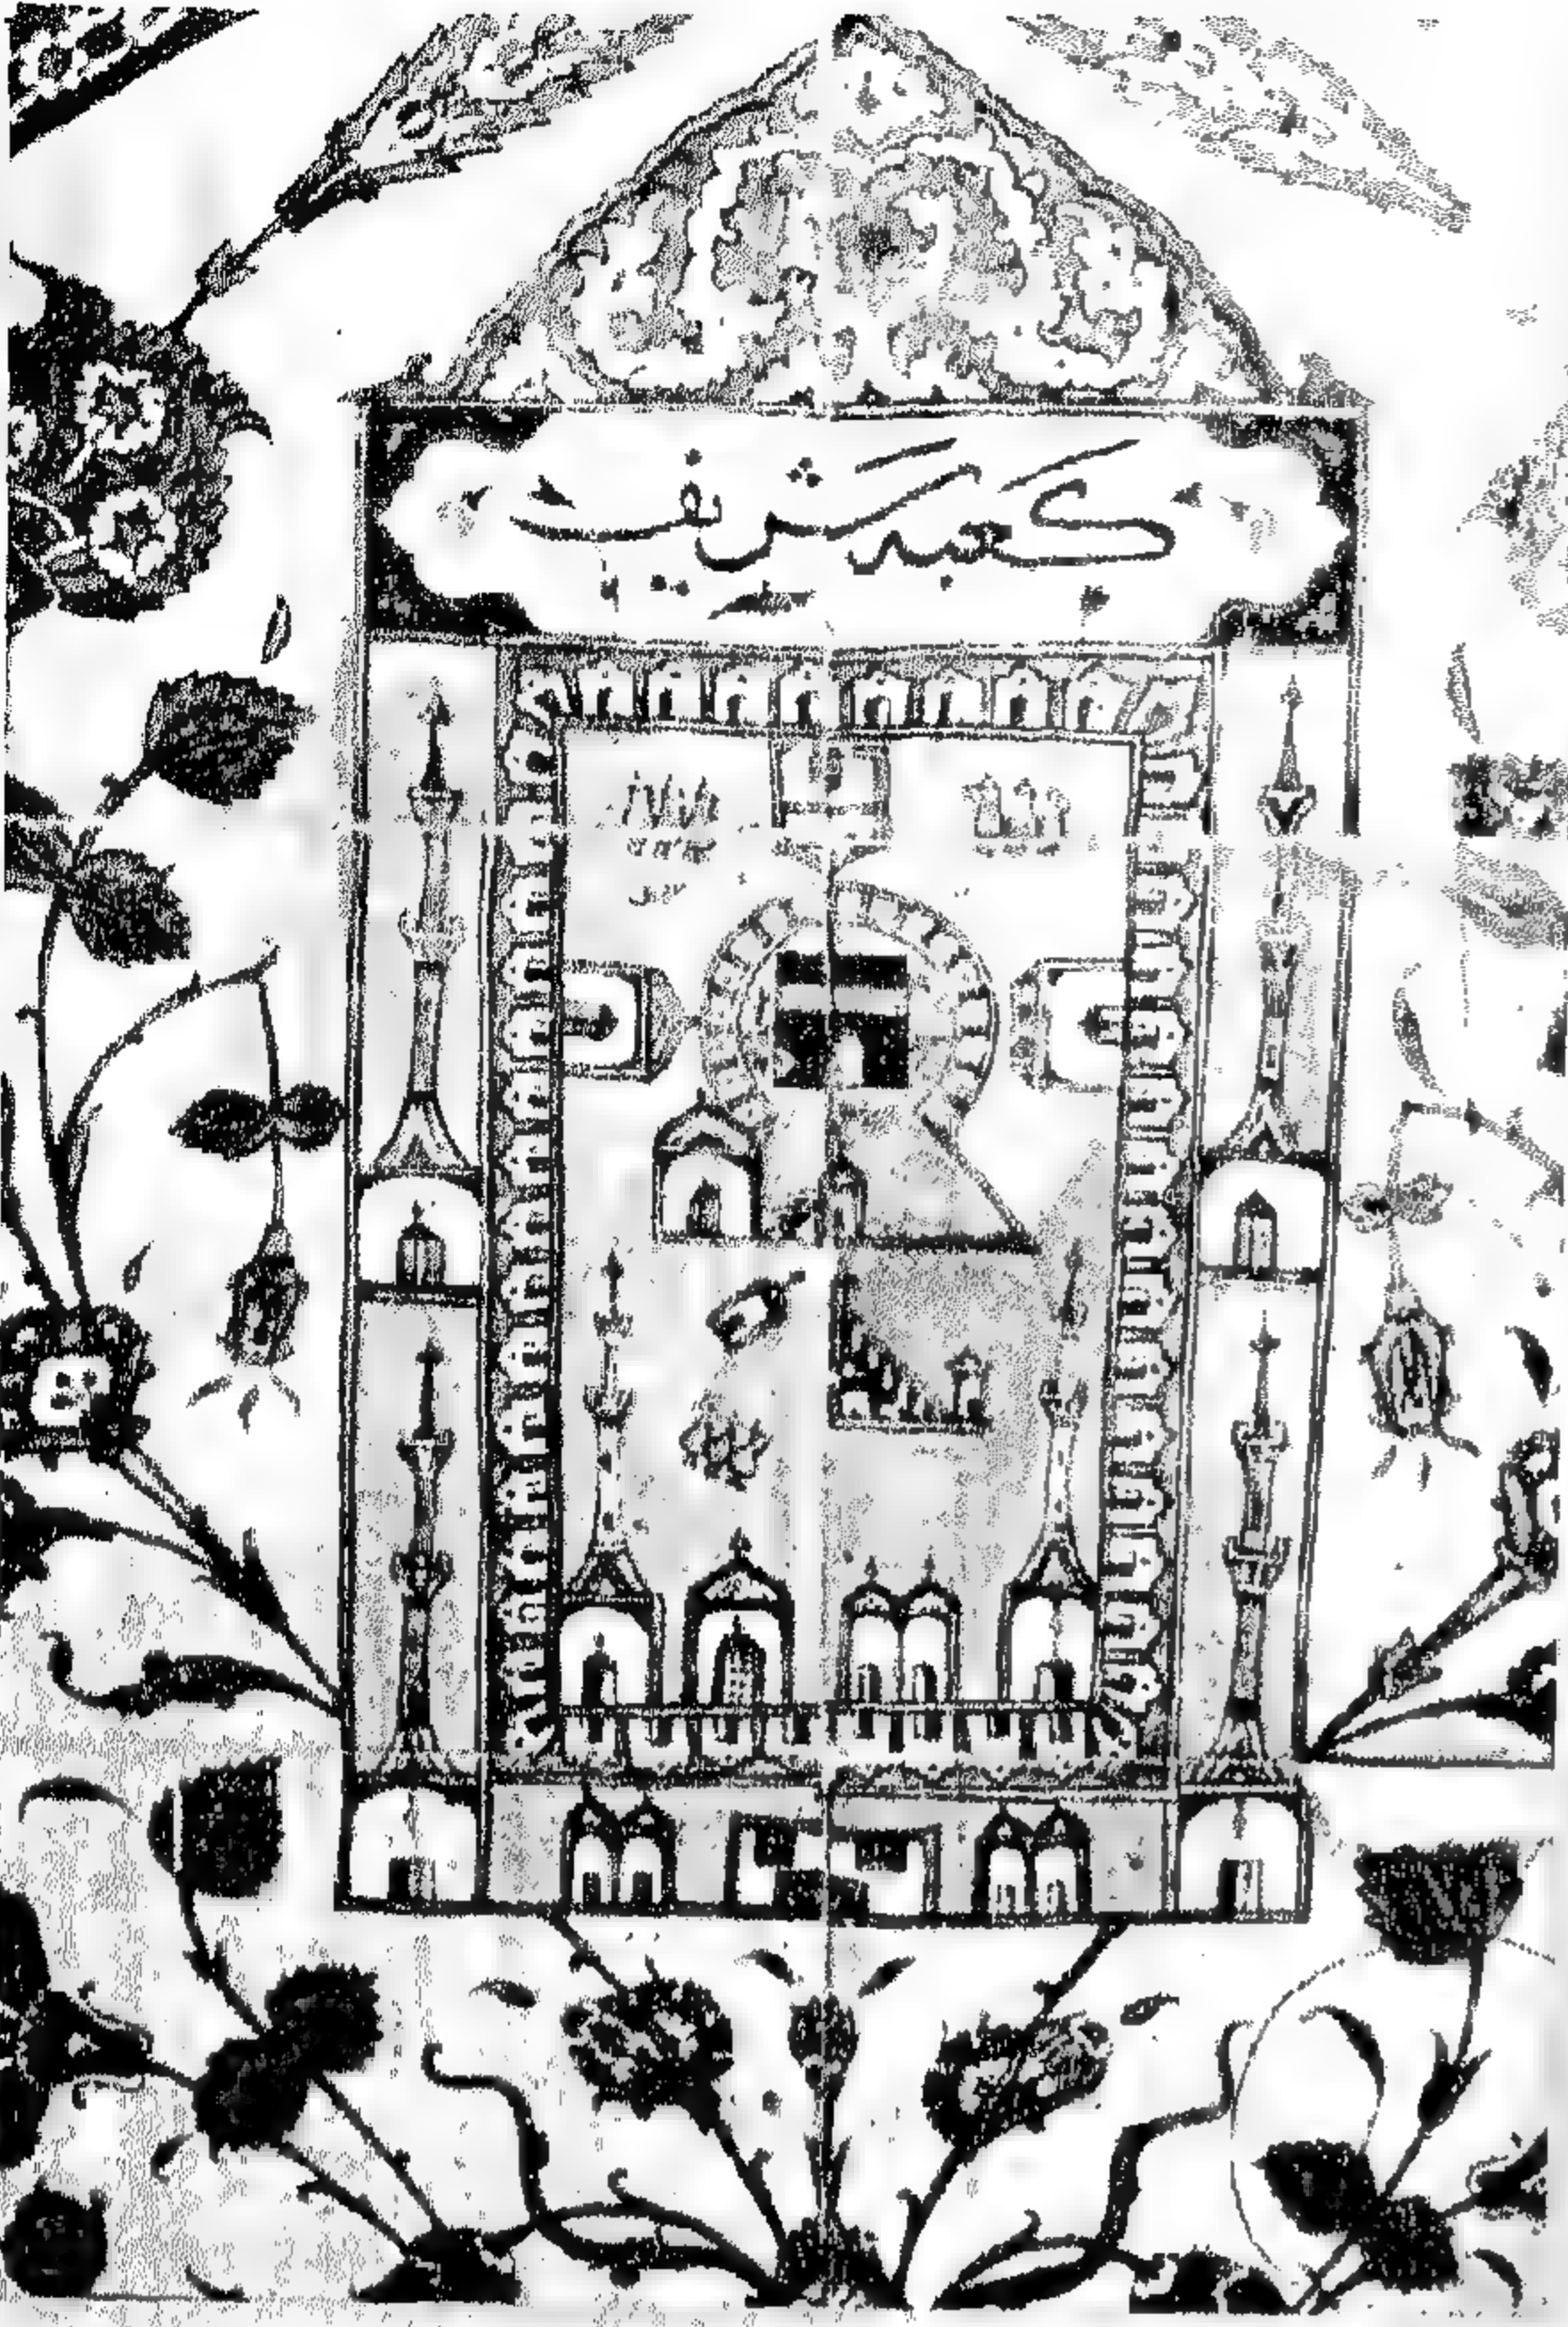 كعبه شريف